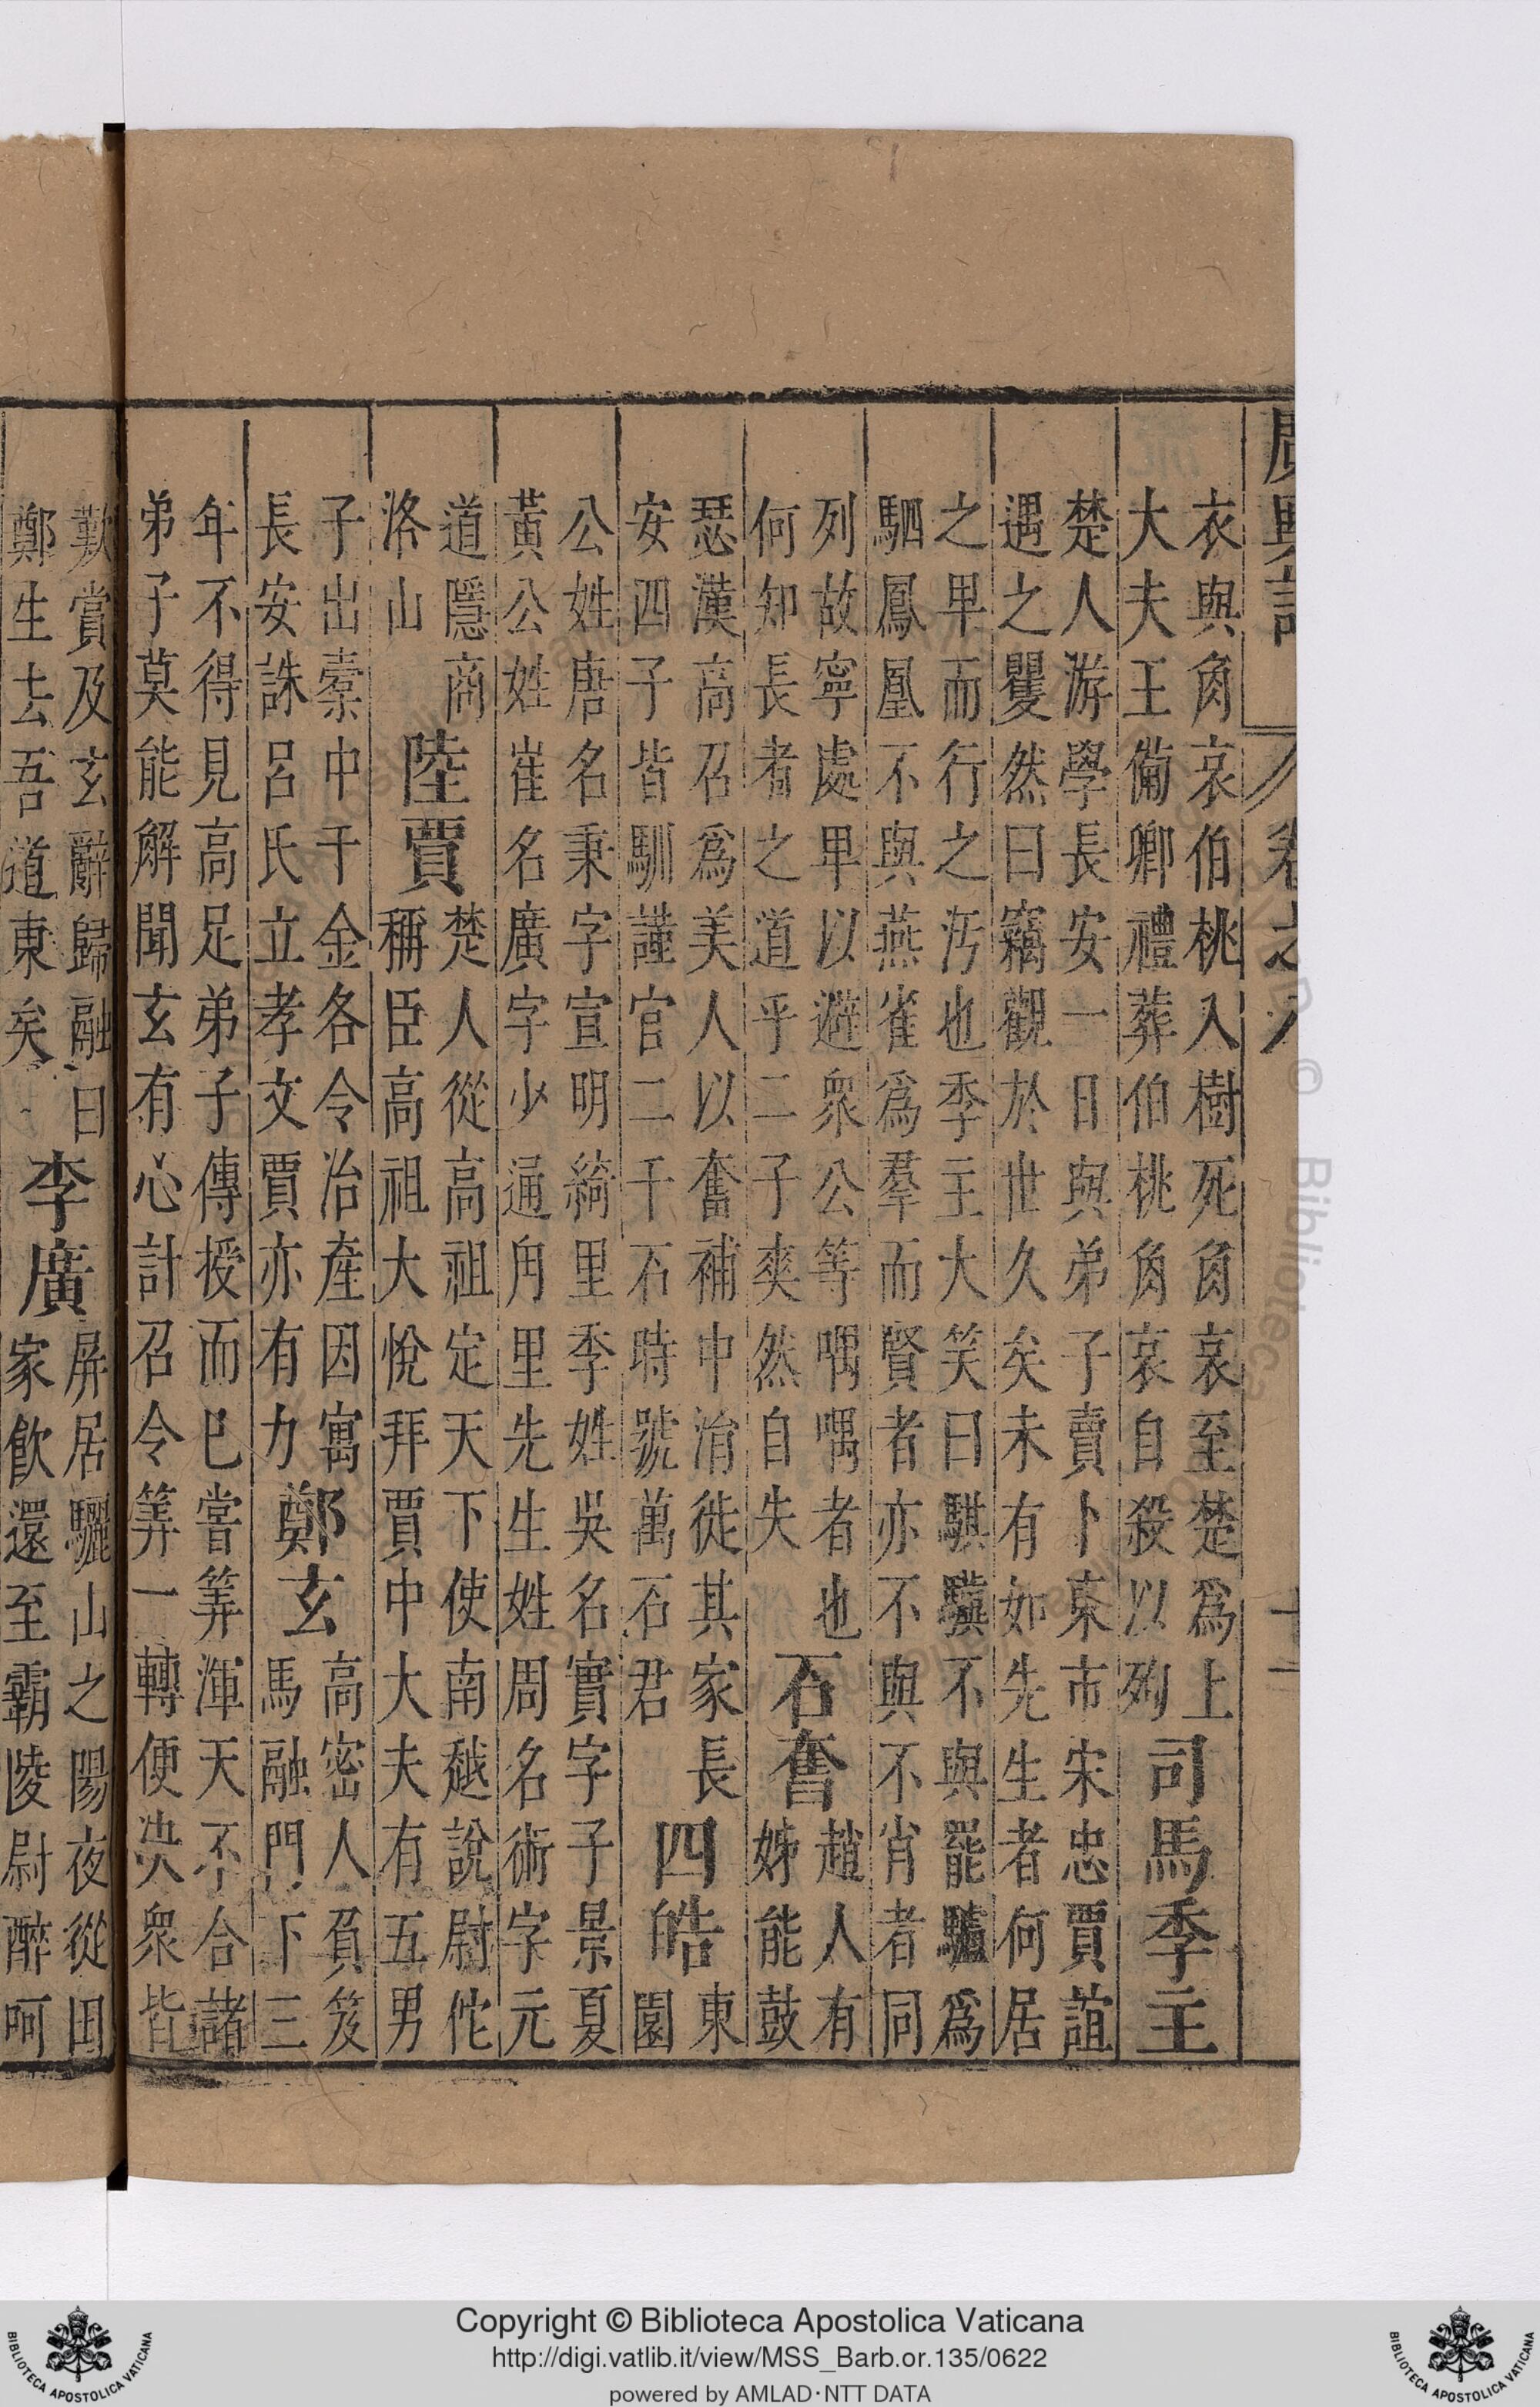 廣輿記 卷之八 十一
衣與角哀伯桃入樹死角哀至楚爲上
大夫王備卿禮葬伯桃角哀自殺以殉 司馬季主
楚人游學長安一日與弟子賣卜東市宋忠賈誼
遇之瞿然曰竊觀於世久矣未有如先生者何居
之卑而行之汚也季主大笑曰騏驥不與罷驢爲
駟鳳凰不與燕雀爲羣而賢者亦不與不肖者同
列故寧處卑以避衆公等喁喁者也
何知長者之道乎二子爽然自失 石奮 趙人有
姊能鼓
瑟漢高召爲美人以奮補中涓徙其家長
安四子皆馴謹官二千石時號萬石君 四皓 東
園
公姓唐名秉字宣明綺里季姓吳名實字子景夏
黃公姓崔名廣字少通角里先生姓周名術字元
道隱商
洛山 陸賈 楚人從高祖定天下使南越說尉佗
稱臣高祖大悅拜賈中大夫有五男
子出橐中千金各令治產因寓
長安誅呂氏立孝文賈亦有力 鄭玄 高密人負笈
馬融門下三
年不得見高足弟子傳授而已嘗筭渾天不合諸
弟子莫能解聞玄有心計召令筭一轉便決衆皆
歎賞及玄辭歸融曰
鄭生去吾道東矣 李廣 屏居驪山之陽夜從田
家飲還至霸陵尉醉呵
Copyright © Biblioteca Apostolica Vaticana
http://digi.vatlib.it/view/MSS_Barb.or.135/0622
powered by AMLAD·NTT DATA
BIBLIOTECA APOSTOLICA VATICANA
BIBLIOTECA APOSTOLICA VATICANA